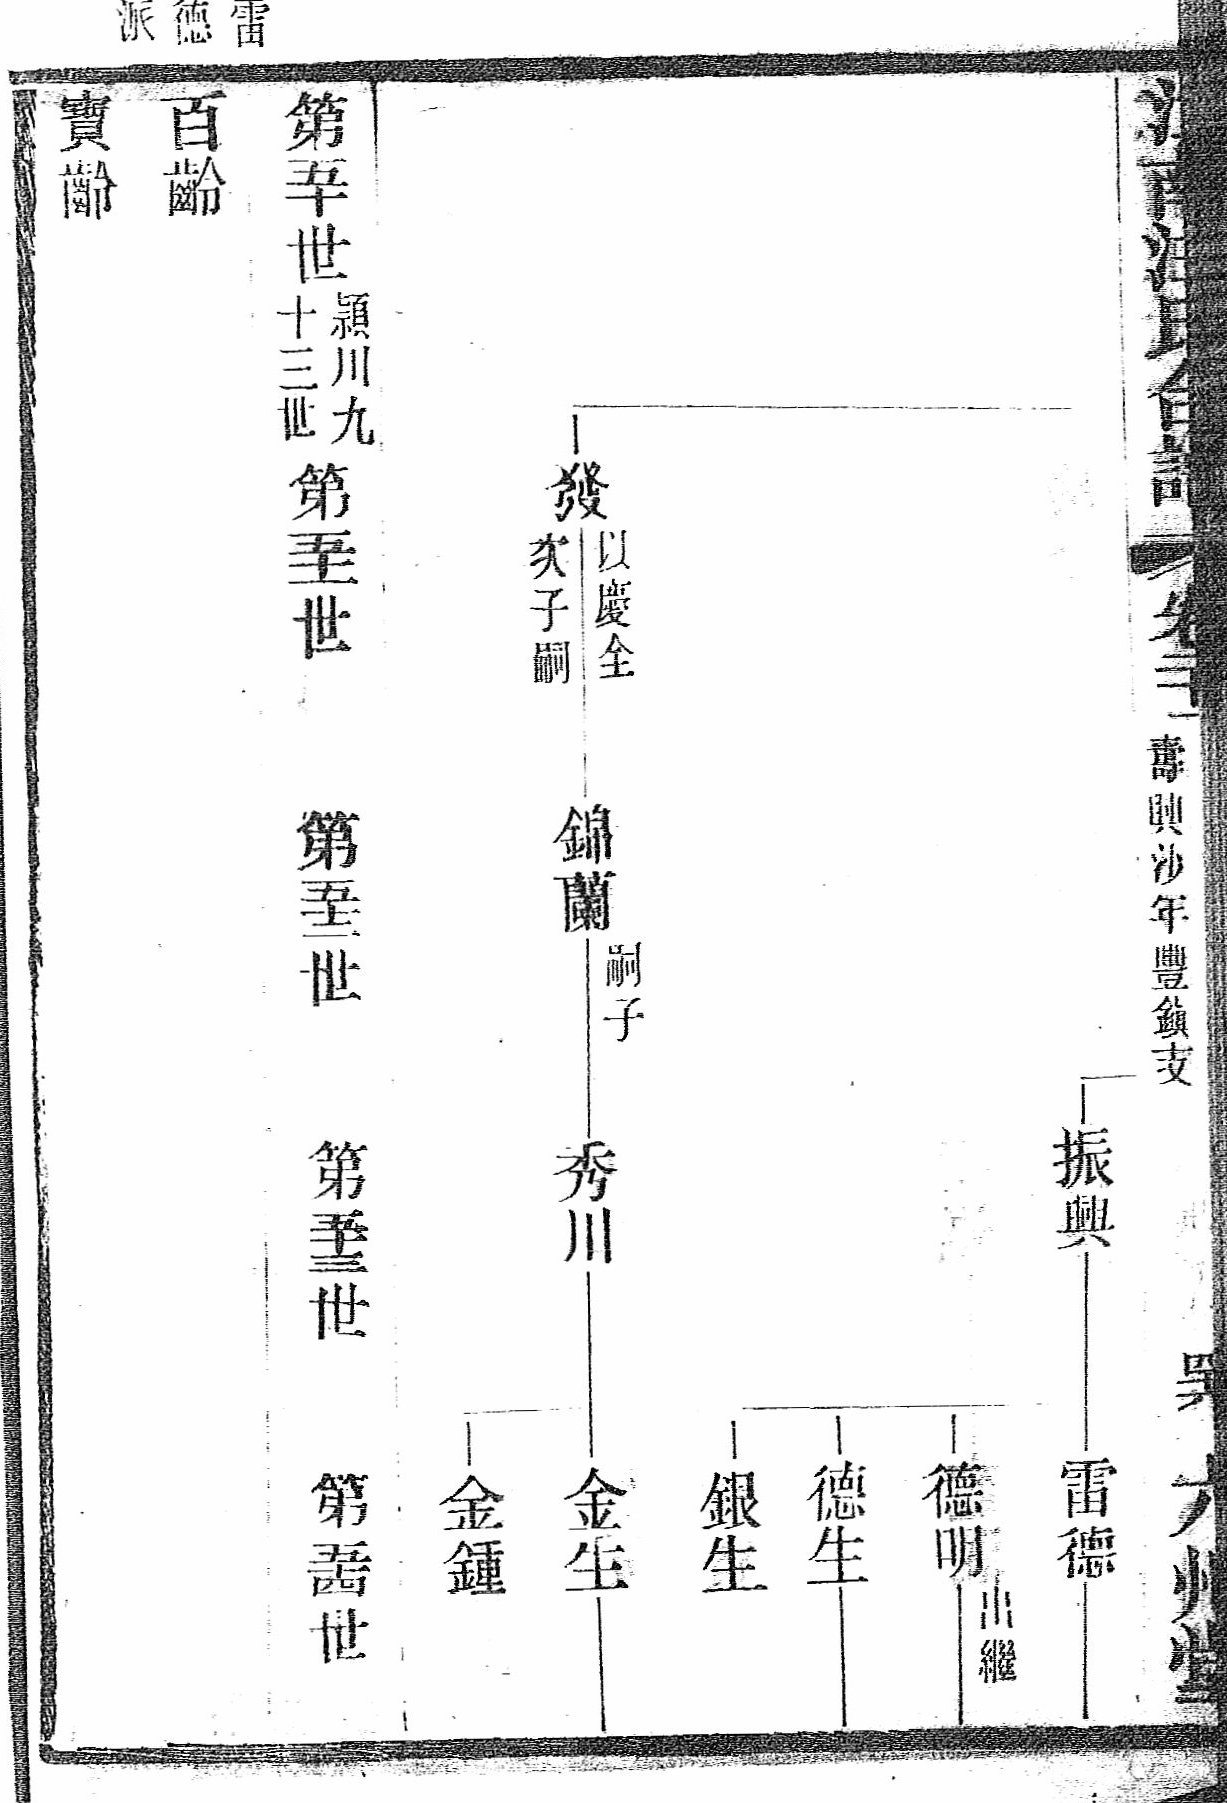 壽興沙年豐鎮支
六州堂
振興
雷德
德明
出繼
德生
銀生
發
以慶全
次子嗣
錦蘭
嗣子
秀川
金生
金鍾
第五十世
潁川九
十三世
第五十一世
第五十二世
第五十三世
第五十四世
雷德派
百齡
寶齡